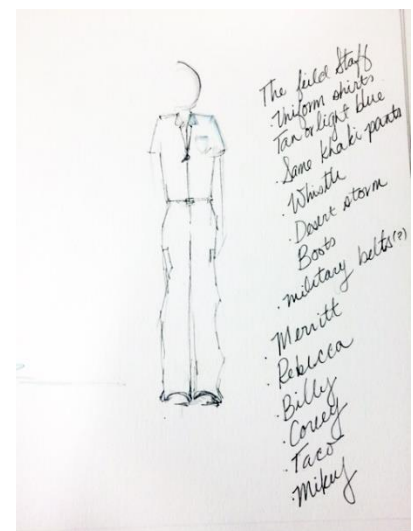 The field Staff
· Uniform shirts
Tan or light blue
· Same khaki pants
· Whistle
· Desert storm
Boots
· military belts(?)
· Merritt
· Rebecca
· Billy
· Corey
· Taco
· Mikey